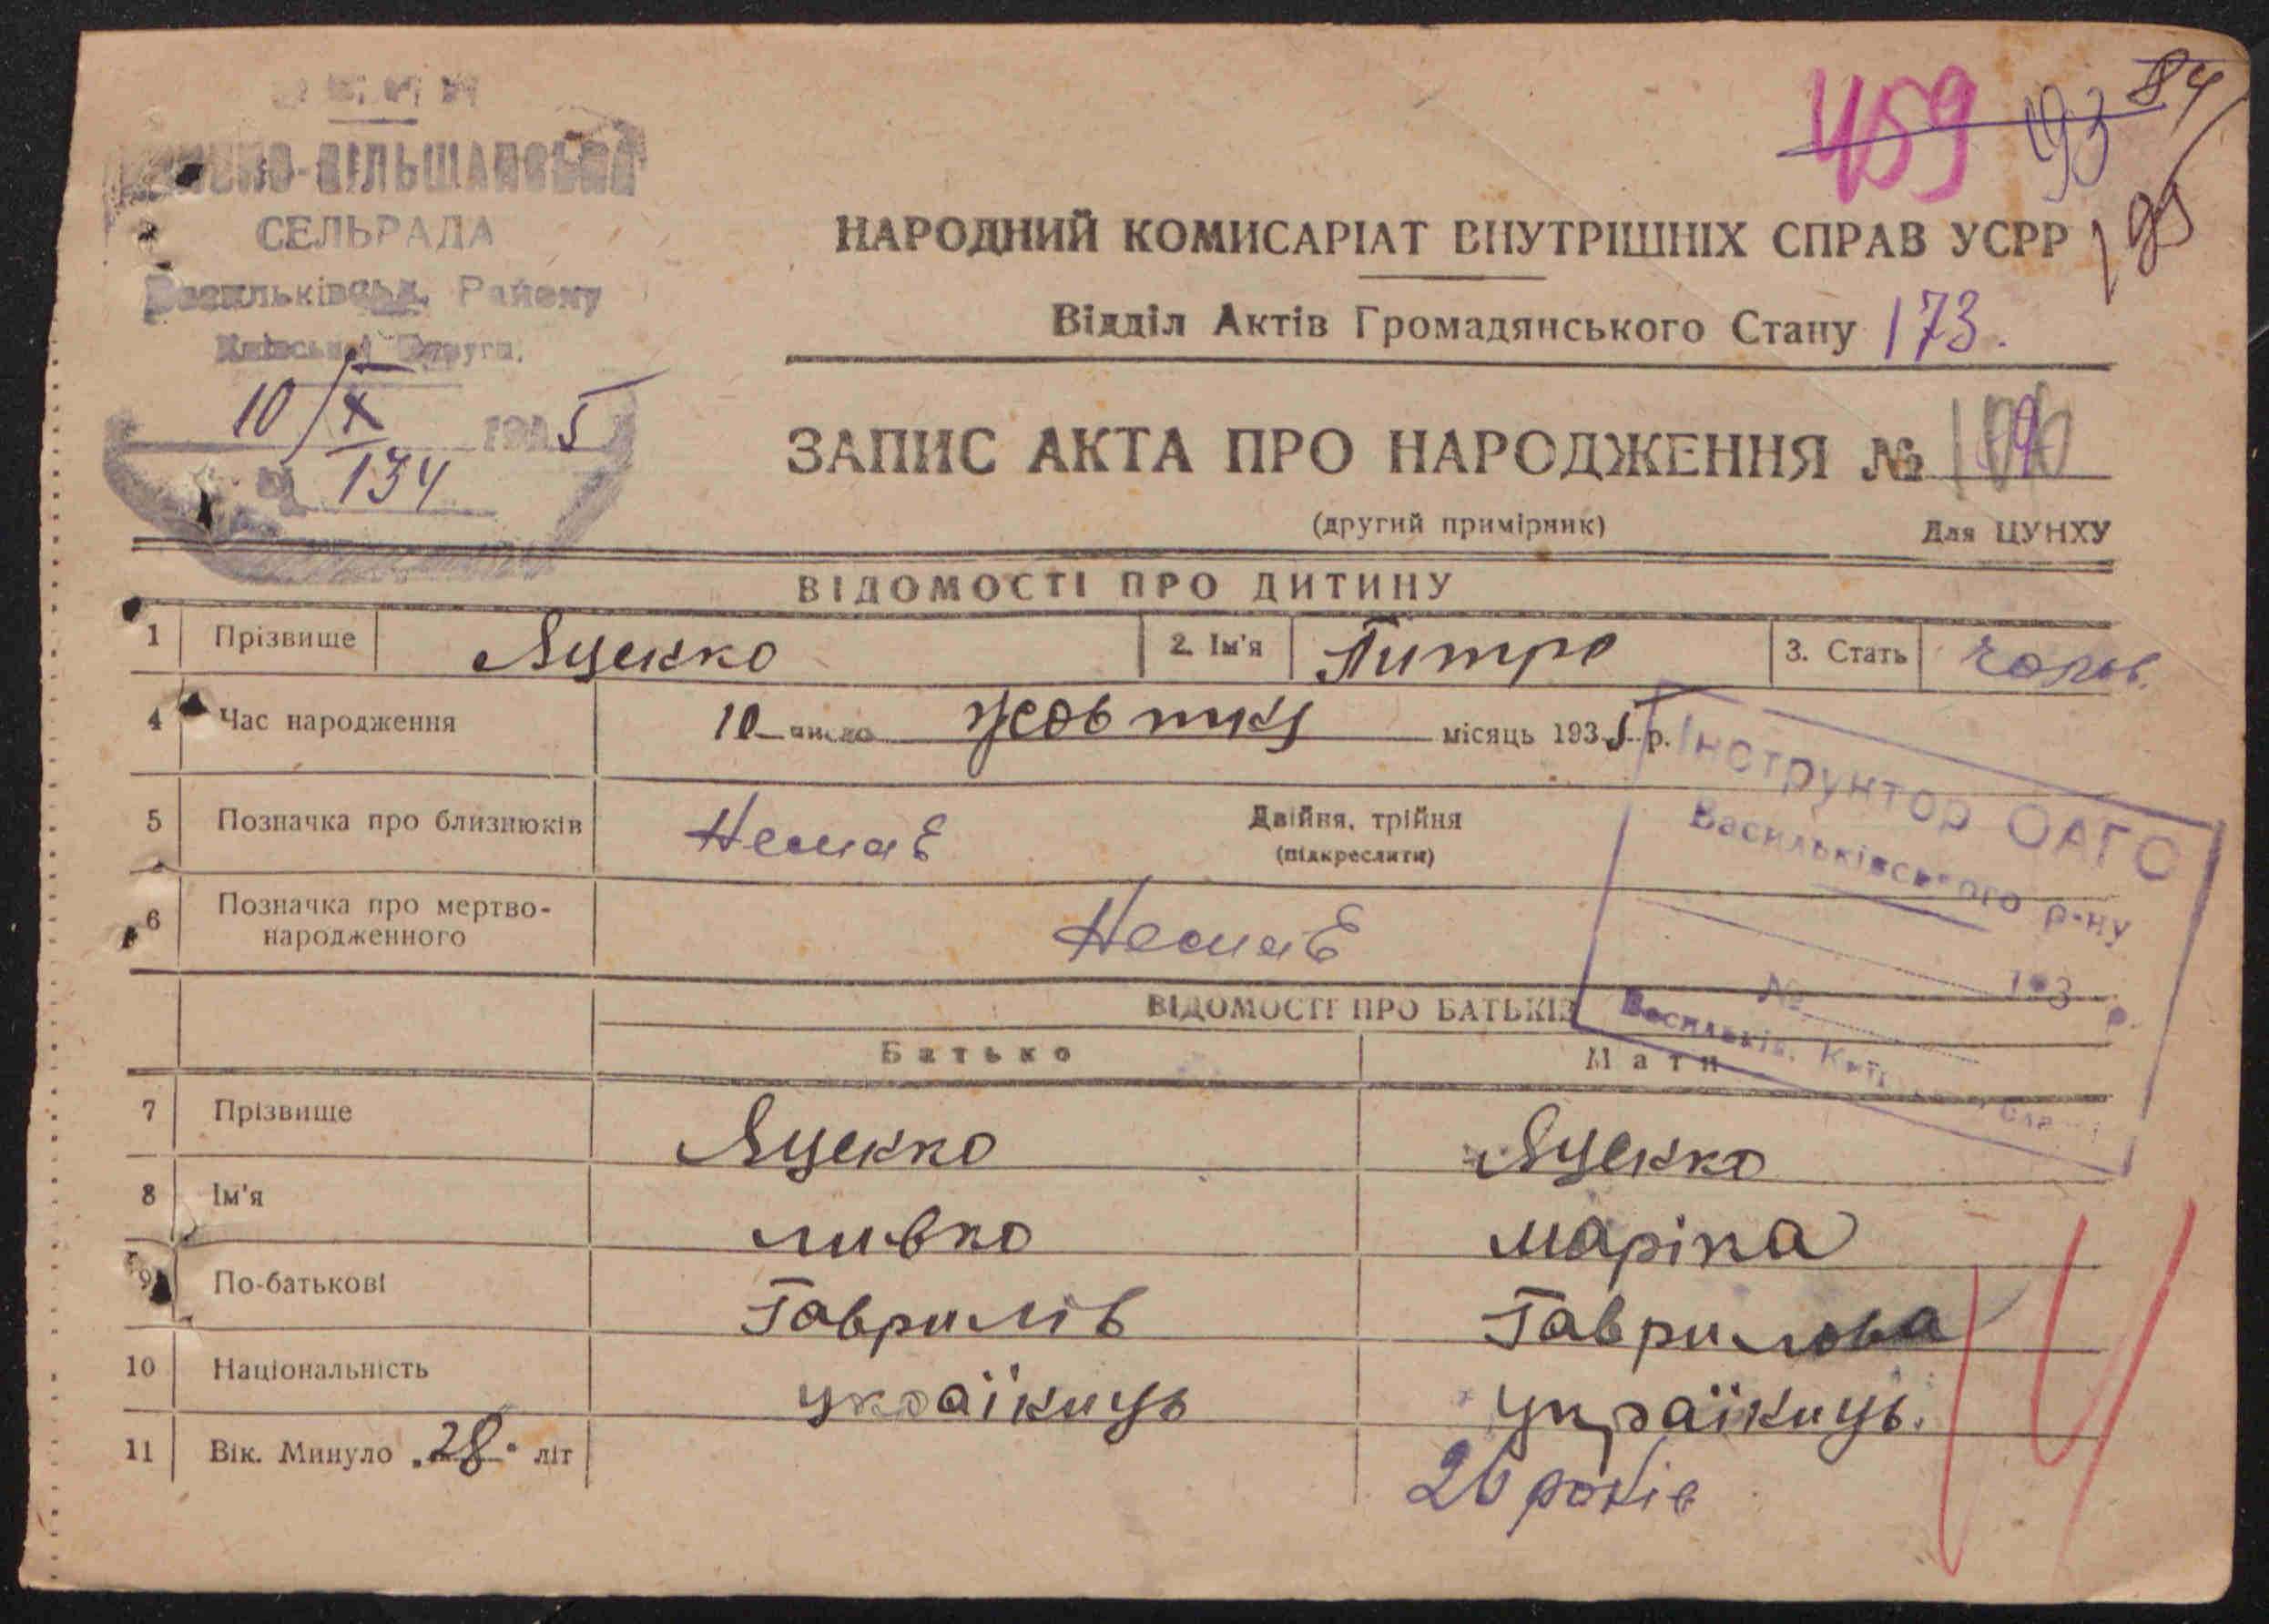 459 93 84
95
СЕЛЬРАДА
Васильківськ. Району
Київської Округи.
10/X 1935
№ 134
НАРОДНИЙ КОМИСАРІАТ ВНУТРІШНІХ СПРАВ УСРР
Відділ Актів Громадянського Стану 173.
ЗАПИС АКТА ПРО НАРОДЖЕННЯ №
(другий примірник) Для ЦУНХУ
ВІДОМОСТІ ПРО ДИТИНУ
1 Прізвище Яценко 2. Ім'я Питро 3. Стать чолов.
4 Час народження 10 число жовтня місяць 1935 р.
5 Позначка про близнюків Немає Двійня, трійня
(підкреслити)
6 Позначка про мертво-
народженного Немає
Інструктор ОАГС
Васильківського р-ну
№ 193 р.
Васильків, Київ
ВІДОМОСТІ ПРО БАТЬКІВ
Батько Мати
7 Прізвище Яценко Яценко
8 Ім'я ливко маріка
9 По-батькові Гаврилів Гаврилова
10 Національність українць українць.
11 Вік. Минуло 28 літ 26 років